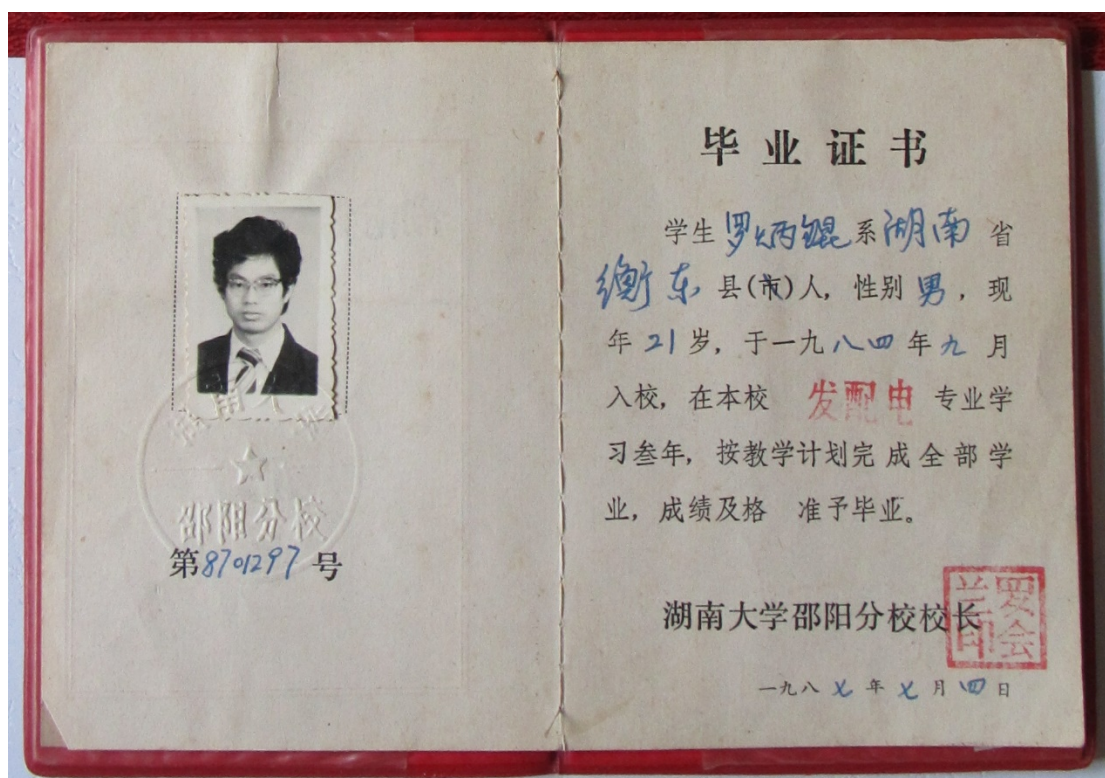 邵阳分校
第8701297号
毕业证书
学生罗炳锟系湖南省
衡东县(市)人，性别男，现
年21岁，于一九八四年九月
入校，在本校 发配电 专业学
习叁年，按教学计划完成全部学
业，成绩及格 准予毕业。
湖南大学邵阳分校校长
罗会兰印
一九八七年七月四日